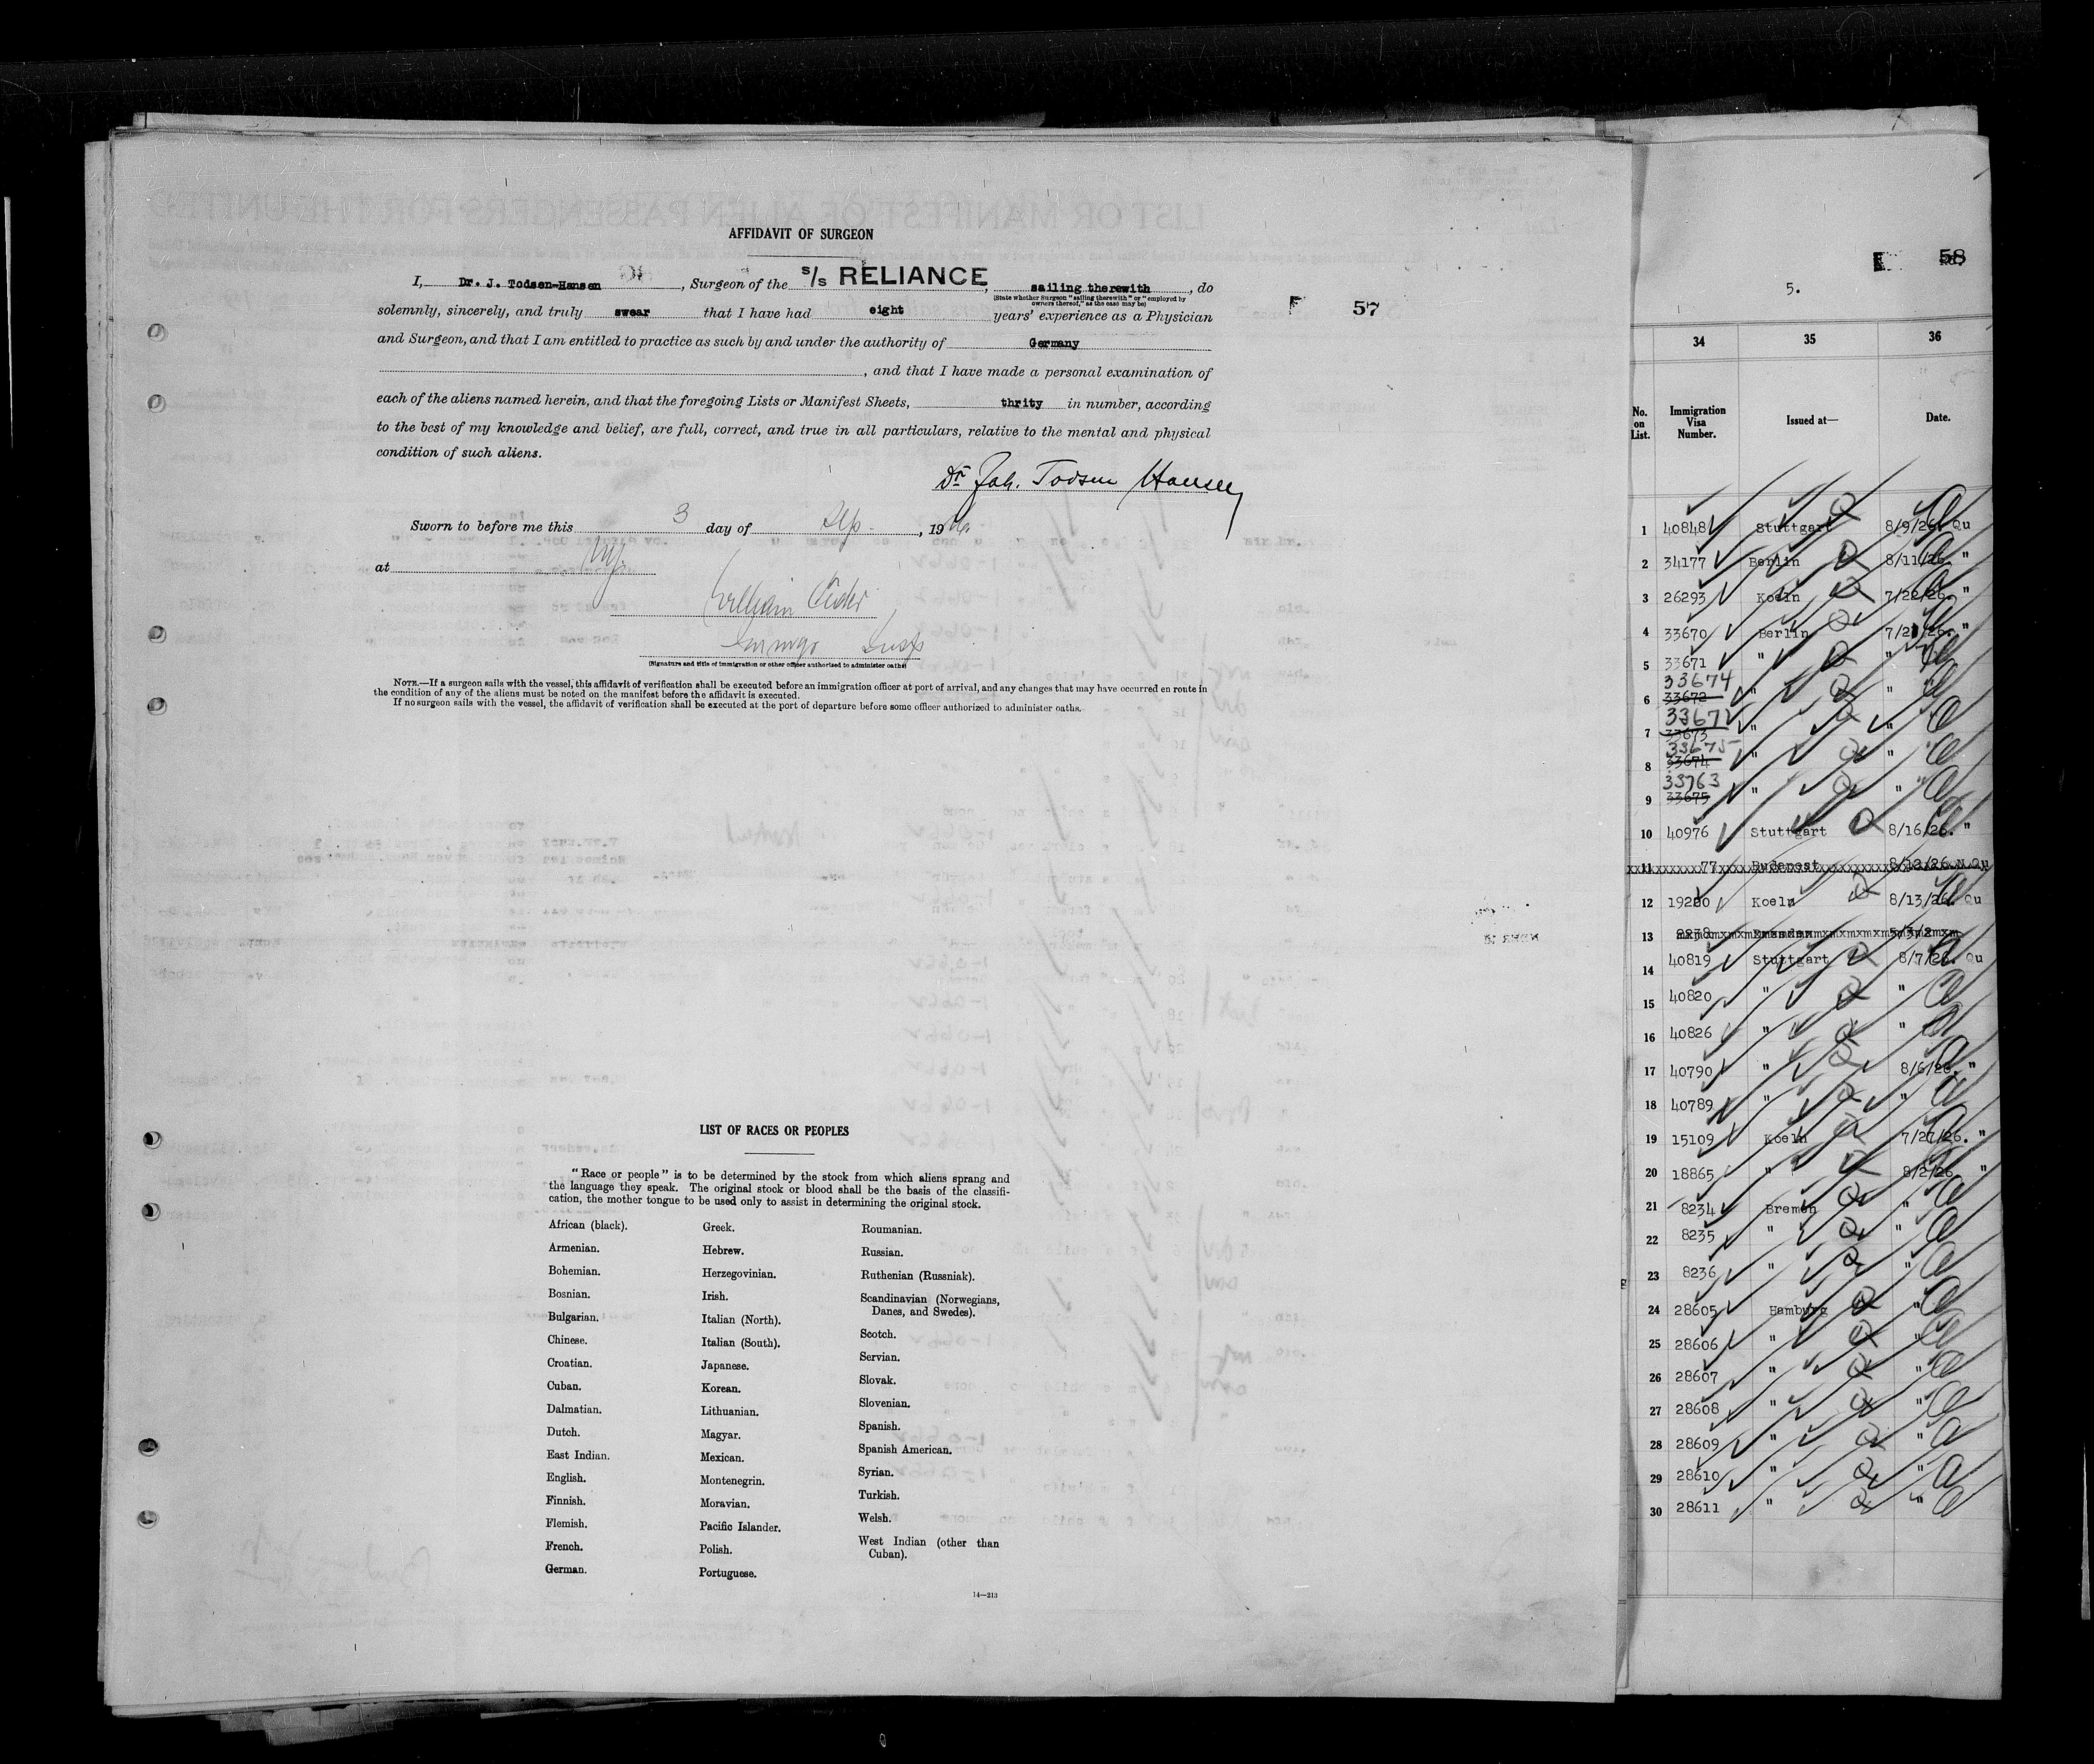 AFFIDAVIT OF SURGEON
I, Dr. J. Todsen-Hansen, Surgeon of the S/S RELIANCE, sailing therewith, do
(State whether Surgeon "sailing therewith" or "employed by
owners thereof," as the case may be)
solemnly, sincerely, and truly swear that I have had eight years' experience as a Physician
and Surgeon, and that I am entitled to practice as such by and under the authority of Germany
, and that I have made a personal examination of
each of the aliens named herein, and that the foregoing Lists or Manifest Sheets, thrity in number, according
to the best of my knowledge and belief, are full, correct, and true in all particulars, relative to the mental and physical
condition of such aliens.
Dr Joh. Todsen Hansen
Sworn to before me this 3 day of Sep, 1926
at NY
William
Immigr Insp
(Signature and title of immigration or other officer authorized to administer oaths)
NOTE.—If a surgeon sails with the vessel, this affidavit of verification shall be executed before an immigration officer at port of arrival, and any changes that may have occurred en route in
the condition of any of the aliens must be noted on the manifest before the affidavit is executed.
If no surgeon sails with the vessel, the affidavit of verification shall be executed at the port of departure before some officer authorized to administer oaths.
F 57
LIST OF RACES OR PEOPLES
"Race or people" is to be determined by the stock from which aliens sprang and
the language they speak. The original stock or blood shall be the basis of the classifi-
cation, the mother tongue to be used only to assist in determining the original stock.
African (black).
Armenian.
Bohemian.
Bosnian.
Bulgarian.
Chinese.
Croatian.
Cuban.
Dalmatian.
Dutch.
East Indian.
English.
Finnish.
Flemish.
French.
German.
Greek.
Hebrew.
Herzegovinian.
Irish.
Italian (North).
Italian (South).
Japanese.
Korean.
Lithuanian.
Magyar.
Mexican.
Montenegrin.
Moravian.
Pacific Islander.
Polish.
Portuguese.
Roumanian.
Russian.
Ruthenian (Russniak).
Scandinavian (Norwegians,
Danes, and Swedes).
Scotch.
Servian.
Slovak.
Slovenian.
Spanish.
Spanish American.
Syrian.
Turkish.
Welsh.
West Indian (other than
Cuban).
14—213
58
5.
34 35 36
No. on List. Immigration Visa Number. Issued at— Date.
1 40848 Stuttgart 8/9/26. Qu
2 34177 Berlin 8/11/26. "
3 26293 Koeln 7/22/26. "
4 33670 Berlin 7/2 /26. "
5 33671 " " "
33674
6 33672 " " "
33672
7 33673 " "
33675
8 33674 " "
33763
9 33675 " " "
10 40976 Stuttgart 8/16/26. "
11 77 Budapest 8/12/26. N.Qu
12 19200 Koeln 8/13/26. Qu
13 8238
14 40819 Stuttgart 8/7/26. Qu
15 40820 " "
16 40826 " "
17 40790 " 8/6/26. "
18 40789 " "
19 15109 Koeln 7/27/26. "
20 18865 " 8/2/26. "
21 8234 Bremen "
22 8235 " "
23 8236 " "
24 28605 Hamburg "
25 28606 " "
26 28607 " "
27 28608 " "
28 28609 " "
29 28610 " "
30 28611 " "